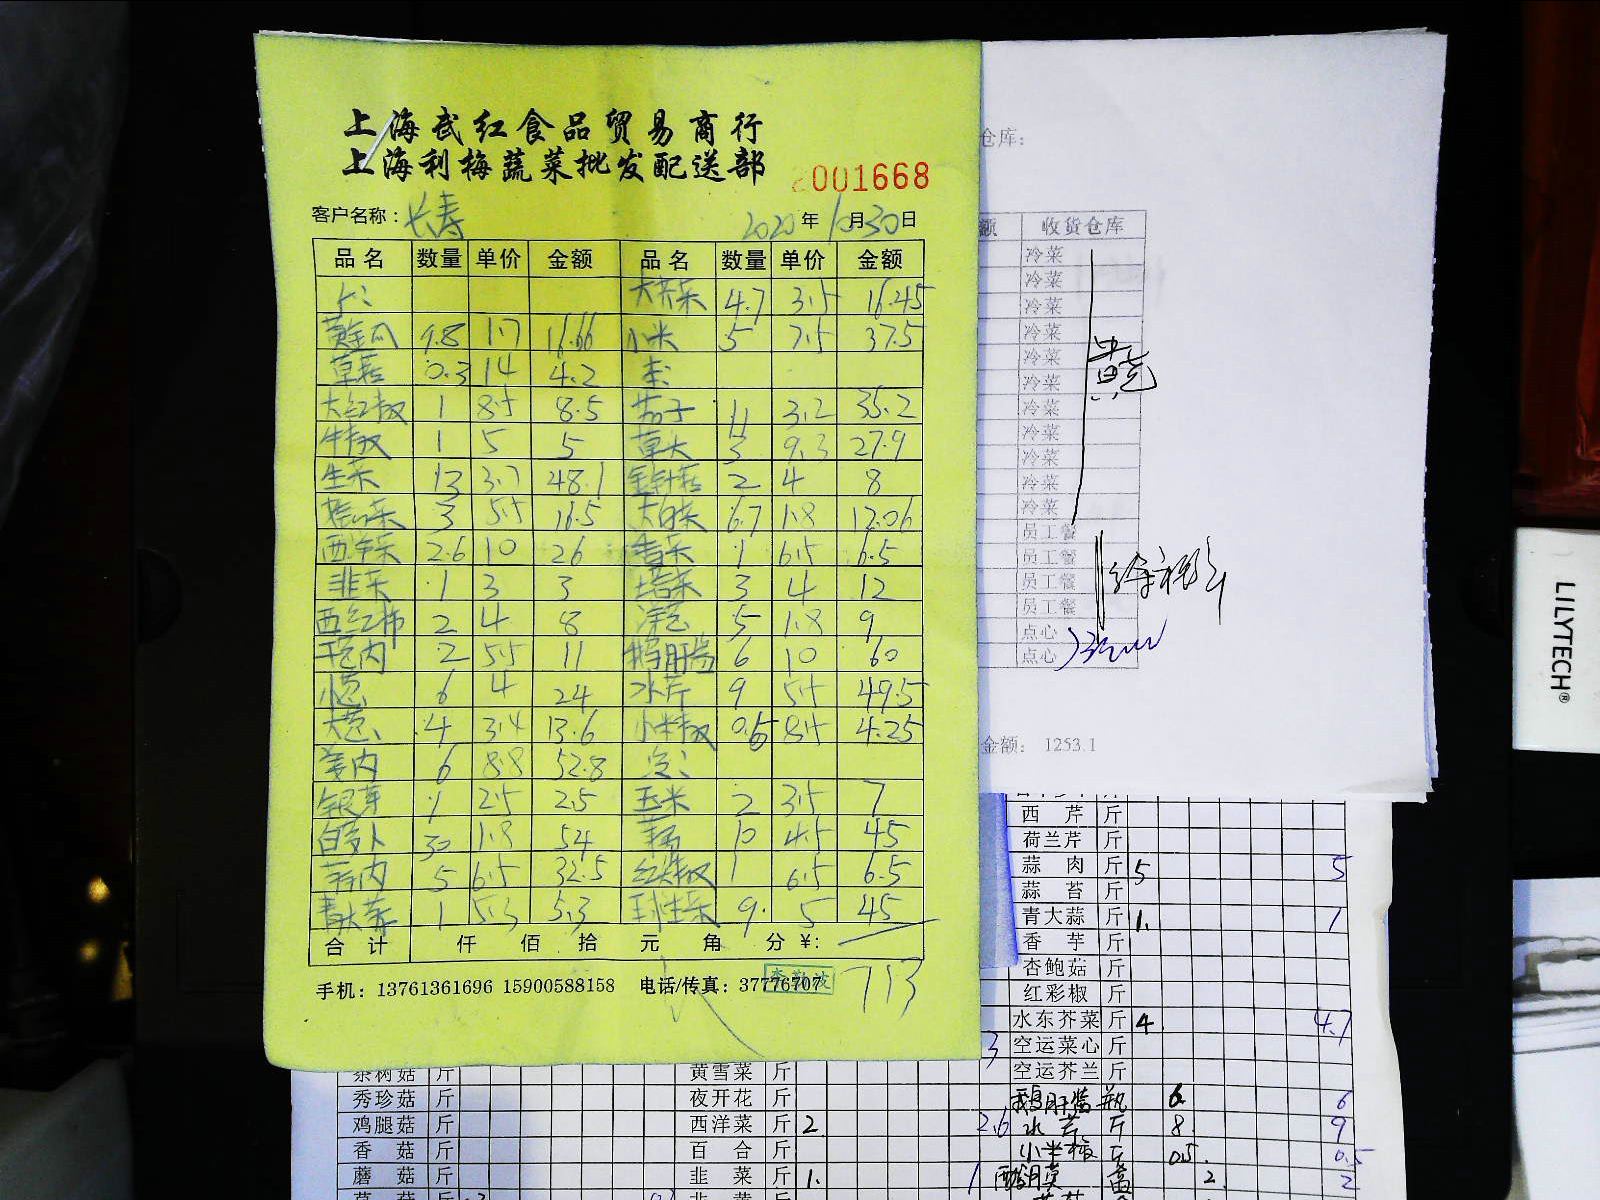 上海武红食品贸易商行
上海利梅蔬菜批发配送部
2001668
客户名称：长寿 2020年10月30日
品名 数量 单价 金额 品名 数量 单价 金额
4.7 3.5 16.45
黄金瓜 9.8 1.7 16.66 小米 5 7.5 37.5
草菇 0.3 14 4.2
大红椒 1 8.5 8.5 茄子 11 3.2 35.2
牛椒 1 5 5 草头 3 9.3 27.9
生菜 13 3.7 48.1 金针菇 2 4 8
3 5.5 16.5 大白菜 6.7 1.8 12.06
西洋菜 2.6 10 26 香菜 1 6.5 6.5
韭菜 1 3 3 塔菜 3 4 12
西红柿 2 4 8 洋芋 5 1.8 9
2 5.5 11 鹅肝酱 6 10 60
小葱 6 4 24 水芹 9 5.5 49.5
大葱 4 3.4 13.6 小米椒 0.5 8.5 4.25
姜肉 6 8.8 52.8
银芽 1 2.5 2.5 玉米 2 3.5 7
白萝卜 30 1.8 54 10 4.5 45
蒜肉 5 6.5 32.5 红尖椒 1 6.5 6.5
青大蒜 1 5.3 5.3 球生菜 9 5 45
合计 仟 佰 拾 元 角 分 ¥:
713
手机：13761361696 15900588158 电话/传真：37776707
仓库：
额 收货仓库
冷菜
冷菜
冷菜
冷菜
冷菜
冷菜
冷菜
冷菜
冷菜
冷菜
冷菜
员工餐
员工餐
员工餐
员工餐
点心
点心
金额： 1253.1
西芹 斤
荷兰芹 斤
蒜肉 斤 5 5
蒜苔 斤
青大蒜 斤 1. 1
香芋 斤
杏鲍菇 斤
红彩椒 斤
水东芥菜 斤 4 4.7
3 空运菜心 斤
茶树菇 斤 黄雪菜 斤 空运芥兰 斤
秀珍菇 斤 夜开花 斤 鹅肝酱 瓶 6 6
鸡腿菇 斤 西洋菜 斤 2 2.6 水芹 斤 8 9
香菇 斤 百合 斤 小米椒 斤 0.5 0.5
蘑菇 斤 韭菜 斤 1. 1 2 2
LILYTECH®